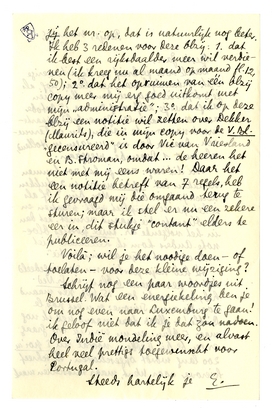 jij het nr. op, dat is natuurlijk nog beter.
Ik heb 3 redenen voor deze blzij: 1. dat
ik best een rijksdaalder meer wil verdie-
nen (ik kreeg nu al maand op maand f 12,
50); 2° dat het opruimen van één blzij
copy meer mij erg goed uitkomt met
mijn "administratie"; 3° dat ik op deze
blzij een notitie wil zetten over Dekker
(Maurits), die in mijn copy voor de V. Bl.
"gecensureerd" is door Vic van Vriesland
en B. Stroman, omdat... de heeren het
niet met mij eens waren! Daar het
een notitie betreft van 7 regels, heb
ik gevraagd mij die omgaand terug te
sturen; maar ik stel er nu een zekere
eer in, dit stukje "contant" elders te
publiceeren.
Voilà; wil je het noodige doen – of
toelaten – voor deze kleine wijziging?
Schrijf nog een paar woordjes uit
Brussel. Wat een energiekeling ben je
om nog even naar Luxemburg te gaan!
ik geloof niet dat ik je dat zou nadoen.
Over Indië mondeling meer, en alvast
heel veel prettigs toegewenscht voor
Portugal.
Steeds hartelijk je E.